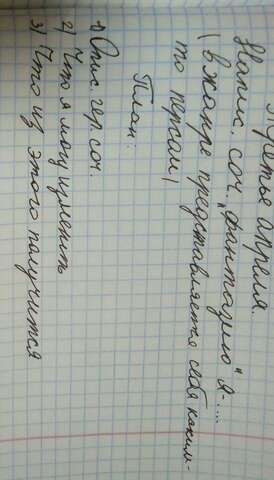 Третье апреля.
Напис. соч. "фантазию" "Я-....
(в жанре представляете себя каким-
то персом)
План:
1) Опис. гер. соч.
2) Что я могу изменить
3) Что из этого получится